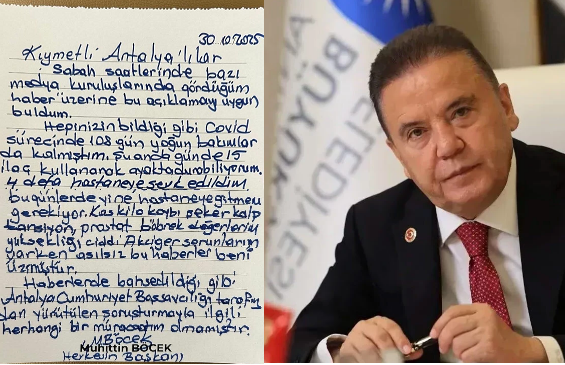 30.10.2025
Kıymetli Antalya'lılar
Sabah saatlerinde bazı
medya kuruluşlarında gördüğüm
haber üzerine bu açıklamayı uygun
buldum.
Hepinizin bildiği gibi Covid
sürecinde 108 gün yoğun bakımlar
da kalmıştım. Şuanda günde 15
ilaç kullanarak ayakta durabiliyorum.
4 defa hastaneye sevk edildim,
bugünlerde yine hastaneye gitmem
gerekiyor. Kas kilo kaybı şeker kalp
tansiyon, prostat böbrek değerlerim
yüksekliği ciddi Akciğer sorunlarım
varken asılsız bu haberler beni
üzmüştür.
Haberlerde bahsedildiği gibi
Antalya Cumhuriyet Başsavcılığı tarafın
dan yürütülen soruşturmayla ilgili
herhangi bir müracaatım olmamıştır.
M BÖCEK
Muhittin BÖCEK
Herkesin Başkanı
BÜYÜK
BELEDİYESİ